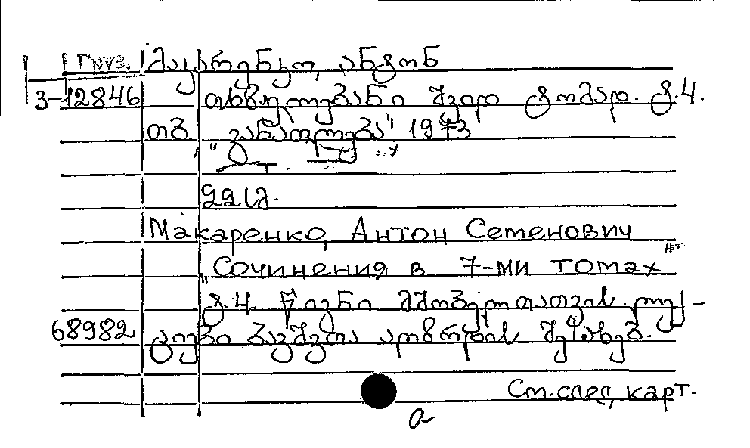 Груз. მაკარენკო, ანტონ
3-12846 თხზულებანი შვიდ ტომად. ტ.4.
თბ. "განათლება" 1973
992გ.
Макаренко, Антон Семенович
"Сочинения в 7-ми томах
ტ.4. წიგნი მშობელთათვის. ლექ-
68982 ციები ბავშვთა აღზრდის შესახებ.
См. след. карт.